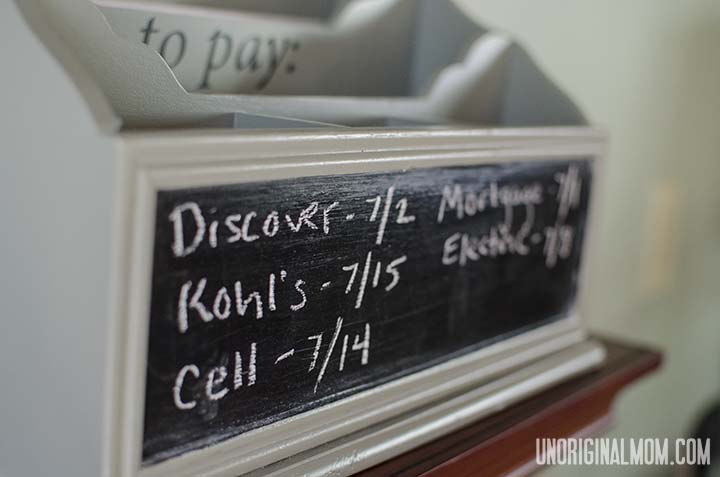 to pay:
Discover - 7/2
Kohl's - 7/15
Cell - 7/14
Mortgage - 7/1
Electric - 7/8
UNORIGINALMOM.COM